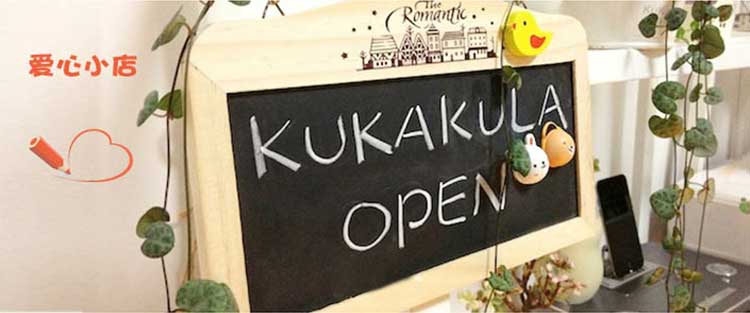 爱心小店
The
Romantic
KUKAKULA
OPEN